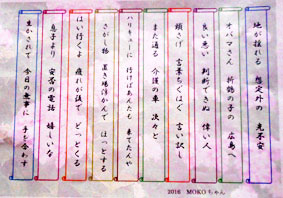 地が揺れる 想定外の 不安
オバマさん 折鶴の子の 広島へ
良い悪い 判断できぬ 偉い人
頭さげ 言葉ちぐはぐ 言い訳し
また通る 介護の車 次々と
ハリキューに 行けばあんたも 来てたんや
さがし物 置き場浮かんで ほっとする
はい行くよ 疲れが後で どっとくる
息子より 安否の電話 嬉しいな
生かされて 今日の無事に 手を合わす
2016 MOKOちゃん